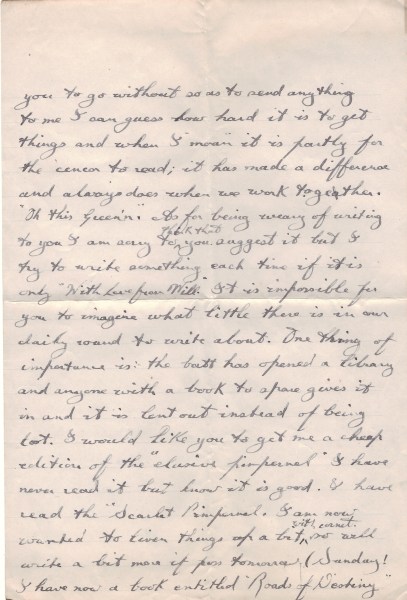 you to go without so as to send anything
to me I can guess how hard it is to get
things and when I "moan" it is partly for
the cencor to read; it has made a difference
and always does when we work together.
"Oh this Green'n". As for being weary of writing
to you I am sorry to think that you suggest it but I
try to write something each time if it is
only "With Love from Will". It is impossible for
you to imagine what little there is in our
daily round to write about. One thing of
importance is: the batt has opened a library
and anyone with a book to spare gives it
in and it is lent out instead of being
lost. I would like you to get me a cheap
edition of the "elusive pimpernel" I have
never read it but know it is good. I have
read the "Scarlet Pimpernel. I am now
wanted to liven things up a bit, with cornet. so will
write a bit more if poss tomorrow (Sunday!
I have now a book entitled "Roads of Destiny"